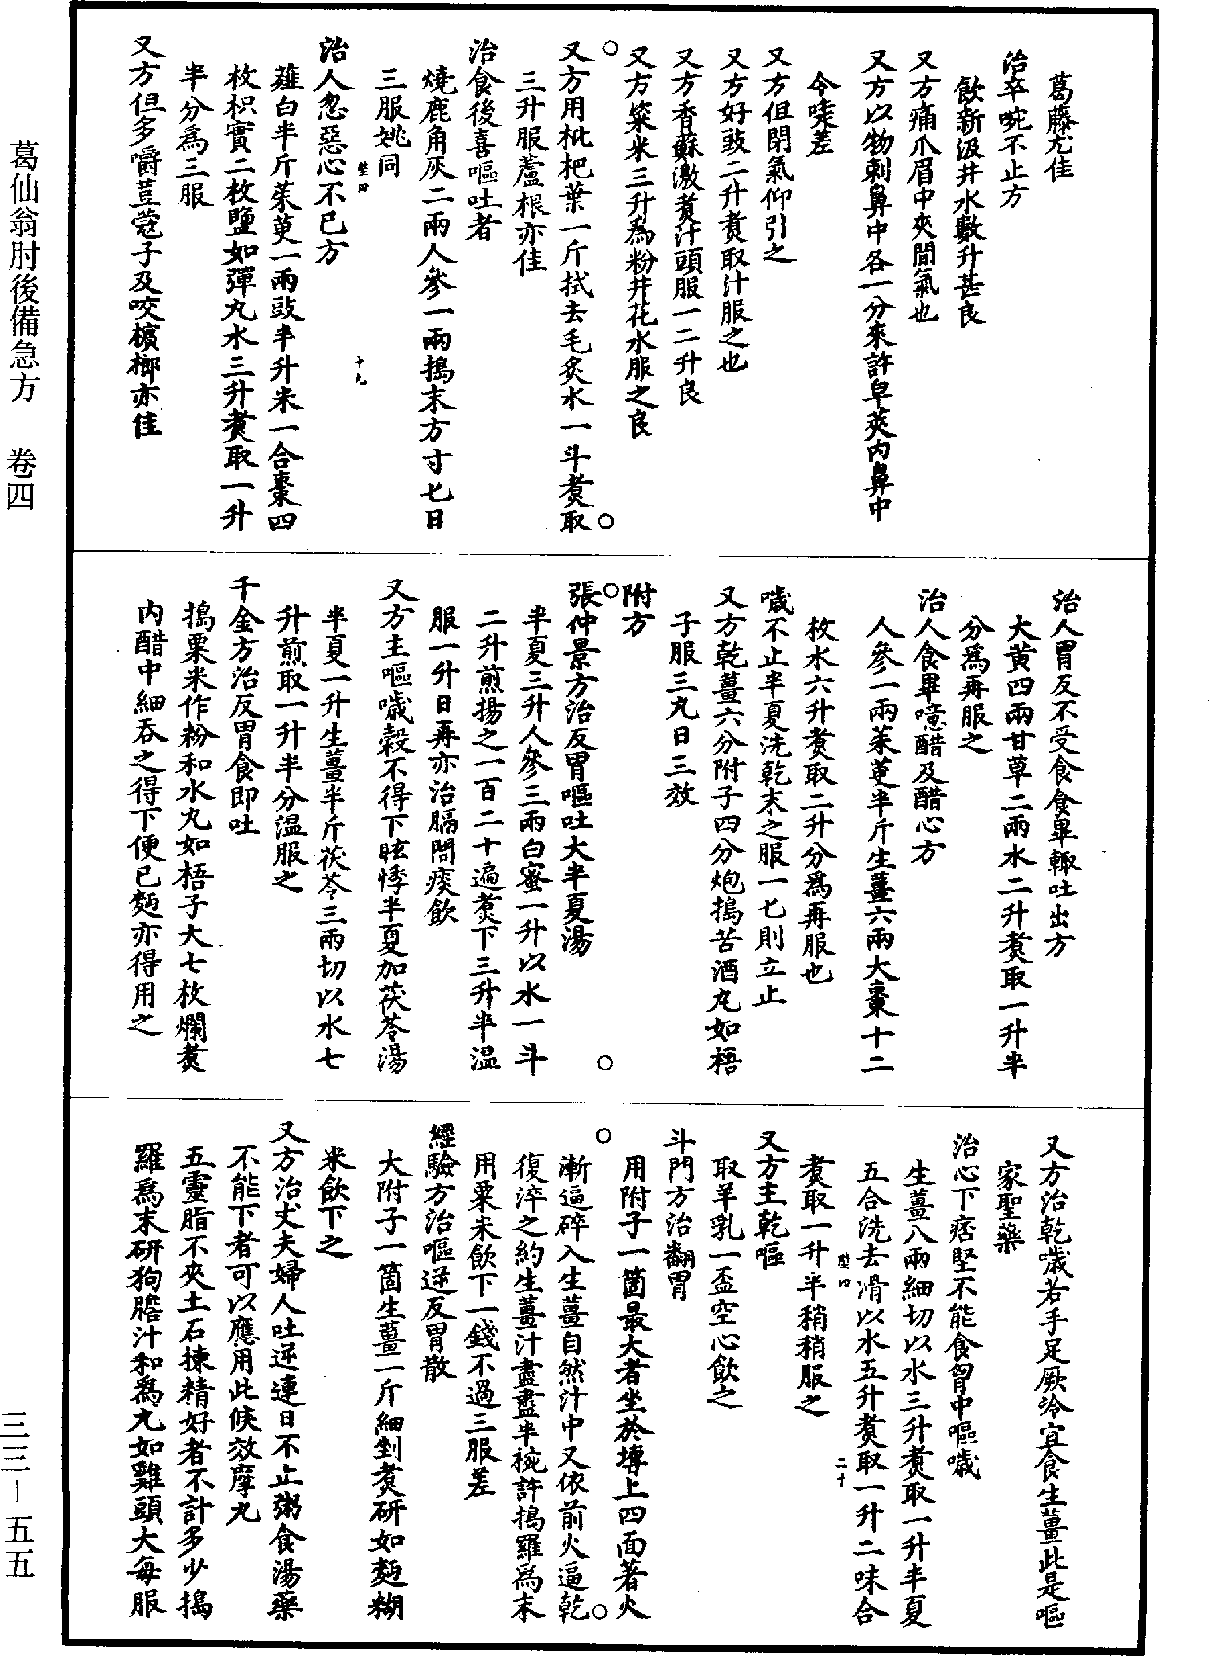 葛仙翁肘後備急方 卷四
三三—五五
葛藤尤佳
治卒啘不止方
飲新汲井水數升甚良
又方痛爪眉中夾間氣也
又方以物刺鼻中各一分來許皁莢內鼻中
令嚏差
又方但閉氣仰引之
又方好豉二升煑取汁服之也
又方香蘇濃煑汁頓服一二升良
又方粢米三升爲粉井花水服之良
又方用枇杷葉一斤拭去毛炙水一斗煑取
三升服蘆根亦佳
治食後喜嘔吐者
燒鹿角灰二兩人參一兩搗末方寸匕日
三服姚同
治人忽惡心不已方
十九
薤白半斤茱萸一兩豉半升米一合棗四
枚枳實二枚鹽如彈丸水三升煑取一升
半分爲三服
又方但多嚼荳蔻子及咬檳榔亦佳
治人胃反不受食食畢輒吐出方
大黃四兩甘草二兩水二升煑取一升半
分爲再服之
治人食畢噫醋及醋心方
人參一兩茱萸半斤生薑六兩大棗十二
枚水六升煑取二升分爲再服也
噦不止半夏洗乾末之服一匕則立止
又方乾薑六分附子四分炮搗苦酒丸如梧
子服三丸日三效
附方
張仲景方治反胃嘔吐大半夏湯
半夏三升人參三兩白蜜一升以水一斗
二升煎揚之一百二十遍煑下三升半溫
服一升日再亦治膈間痰飲
又方主嘔噦穀不得下眩悸半夏加茯苓湯
半夏一升生薑半斤茯苓三兩切以水七
升煎取一升半分溫服之
千金方治反胃食即吐
搗粟米作粉和水丸如梧子大七枚爛煑
內醋中細吞之得下便已麪亦得用之
又方治乾噦若手足厥冷宜食生薑此是嘔
家聖藥
治心下痞堅不能食胷中嘔噦
生薑八兩細切以水三升煑取一升半夏
五合洗去滑以水五升煑取一升二味合
煑取一升半稍稍服之
二十
又方主乾嘔
取羊乳一盃空心飲之
斗門方治翻胃
用附子一箇最大者坐於塼上四面著火
漸逼碎入生薑自然汁中又依前火逼乾
復淬之約生薑汁盡盡半椀許搗羅爲末
用粟米飲下一錢不過三服差
經驗方治嘔逆反胃散
大附子一箇生薑一斤細剉煑研如麪糊
米飲下之
又方治丈夫婦人吐逆連日不止粥食湯藥
不能下者可以應用此候效摩丸
五靈脂不夾土石揀精好者不計多少搗
羅爲末研狗膽汁和爲丸如雞頭大每服